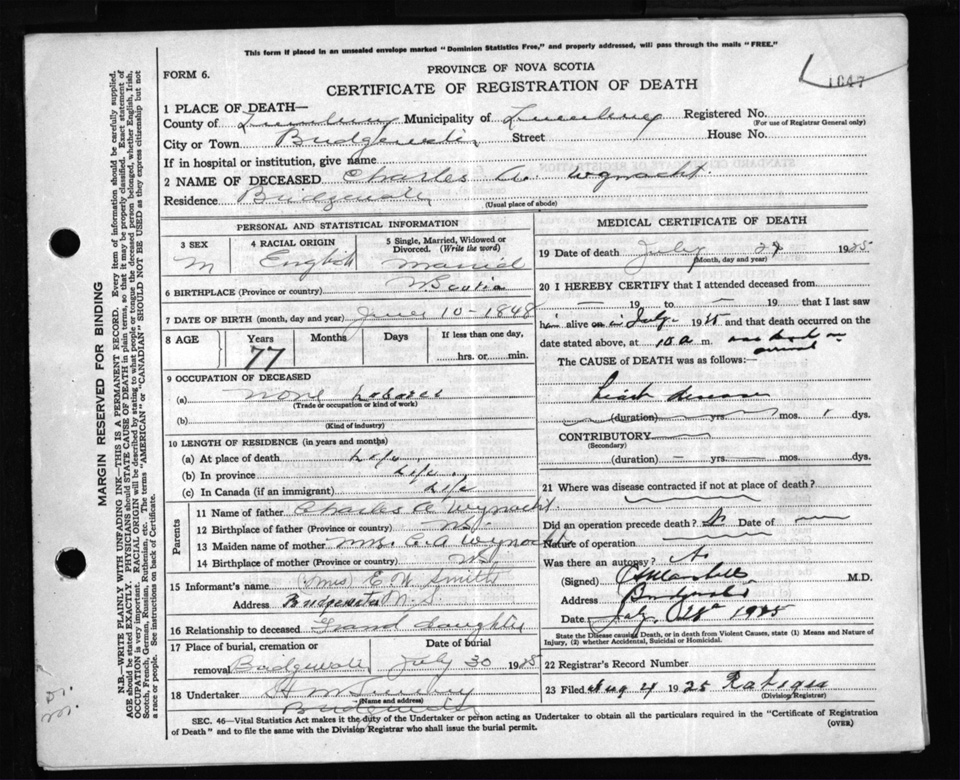 This form if placed in an unsealed envelope marked "Dominion Statistics Free," and properly addressed, will pass through the mails "FREE."
FORM 6.
PROVINCE OF NOVA SCOTIA
CERTIFICATE OF REGISTRATION OF DEATH
1047
MARGIN RESERVED FOR BINDING
N.B.—WRITE PLAINLY WITH UNFADING INK—THIS IS A PERMANENT RECORD. Every item of information should be carefully supplied.
AGE should be stated EXACTLY. PHYSICIANS should STATE CAUSE OF DEATH in plain terms, so that it may be properly classified. Exact statement of
OCCUPATION is very important. RACIAL ORIGIN will be described by stating to what people or tongue the deceased person belonged, whether English, Irish,
Scotch, French, German, Russian, Ruthenian, etc. The terms "AMERICAN" or "CANADIAN" SHOULD NOT BE USED as they express citizenship but not
a race or people. See instructions on back of Certificate.
1 PLACE OF DEATH—
County of Lunenburg Municipality of Lunenburg Registered No.
(For use of Registrar General only)
City or Town Bridgewater Street House No.
If in hospital or institution, give name
2 NAME OF DECEASED Charles A. Wynacht
Residence Bridgewater
(Usual place of abode)
PERSONAL AND STATISTICAL INFORMATION
3 SEX M
4 RACIAL ORIGIN English
5 Single, Married, Widowed or Divorced. (Write the word) Married
6 BIRTHPLACE (Province or country) N Scotia
7 DATE OF BIRTH (month, day and year) June 10-1848
8 AGE Years 77 Months Days If less than one day, hrs. or min.
9 OCCUPATION OF DECEASED
(a) none Laborer
(Trade or occupation or kind of work)
(b)
(Kind of industry)
10 LENGTH OF RESIDENCE (in years and months)
(a) At place of death Life
(b) In province Life
(c) In Canada (if an immigrant) Life
Parents
11 Name of father Charles A Wynacht
12 Birthplace of father (Province or country) NS
13 Maiden name of mother Mrs. C. A Wynacht
14 Birthplace of mother (Province or country) NS
15 Informant's name (Mrs) E W Smith
Address Bridgewater N.S.
16 Relationship to deceased Grand daughter
17 Place of burial, cremation or removal Bridgewater Date of burial July 30 1925
18 Undertaker
(Name and address)
Bridgewater
MEDICAL CERTIFICATE OF DEATH
19 Date of death July 1925
(Month, day and year)
20 I HEREBY CERTIFY that I attended deceased from
— 19 to — 19 that I last saw
him alive on in July 1925 and that death occurred on the
date stated above, at 10 a m. was dead on arrival
The CAUSE OF DEATH was as follows:—
Heart disease
(duration) yrs. mos. 1 dys.
CONTRIBUTORY
(Secondary)
(duration) — yrs. — mos. dys.
21 Where was disease contracted if not at place of death?
Did an operation precede death? No Date of
Nature of operation
Was there an autopsy? No
(Signed) M.D.
Address Bridgewater
Date July 28 1925
State the Disease causing Death, or in death from Violent Causes, state (1) Means and Nature of
Injury, (2) whether Accidental, Suicidal or Homicidal.
22 Registrar's Record Number
23 Filed Aug 4 1925
(Division Registrar)
SEC. 46—Vital Statistics Act makes it the duty of the Undertaker or person acting as Undertaker to obtain all the particulars required in the "Certificate of Registration
of Death" and to file the same with the Division Registrar who shall issue the burial permit.
(OVER)